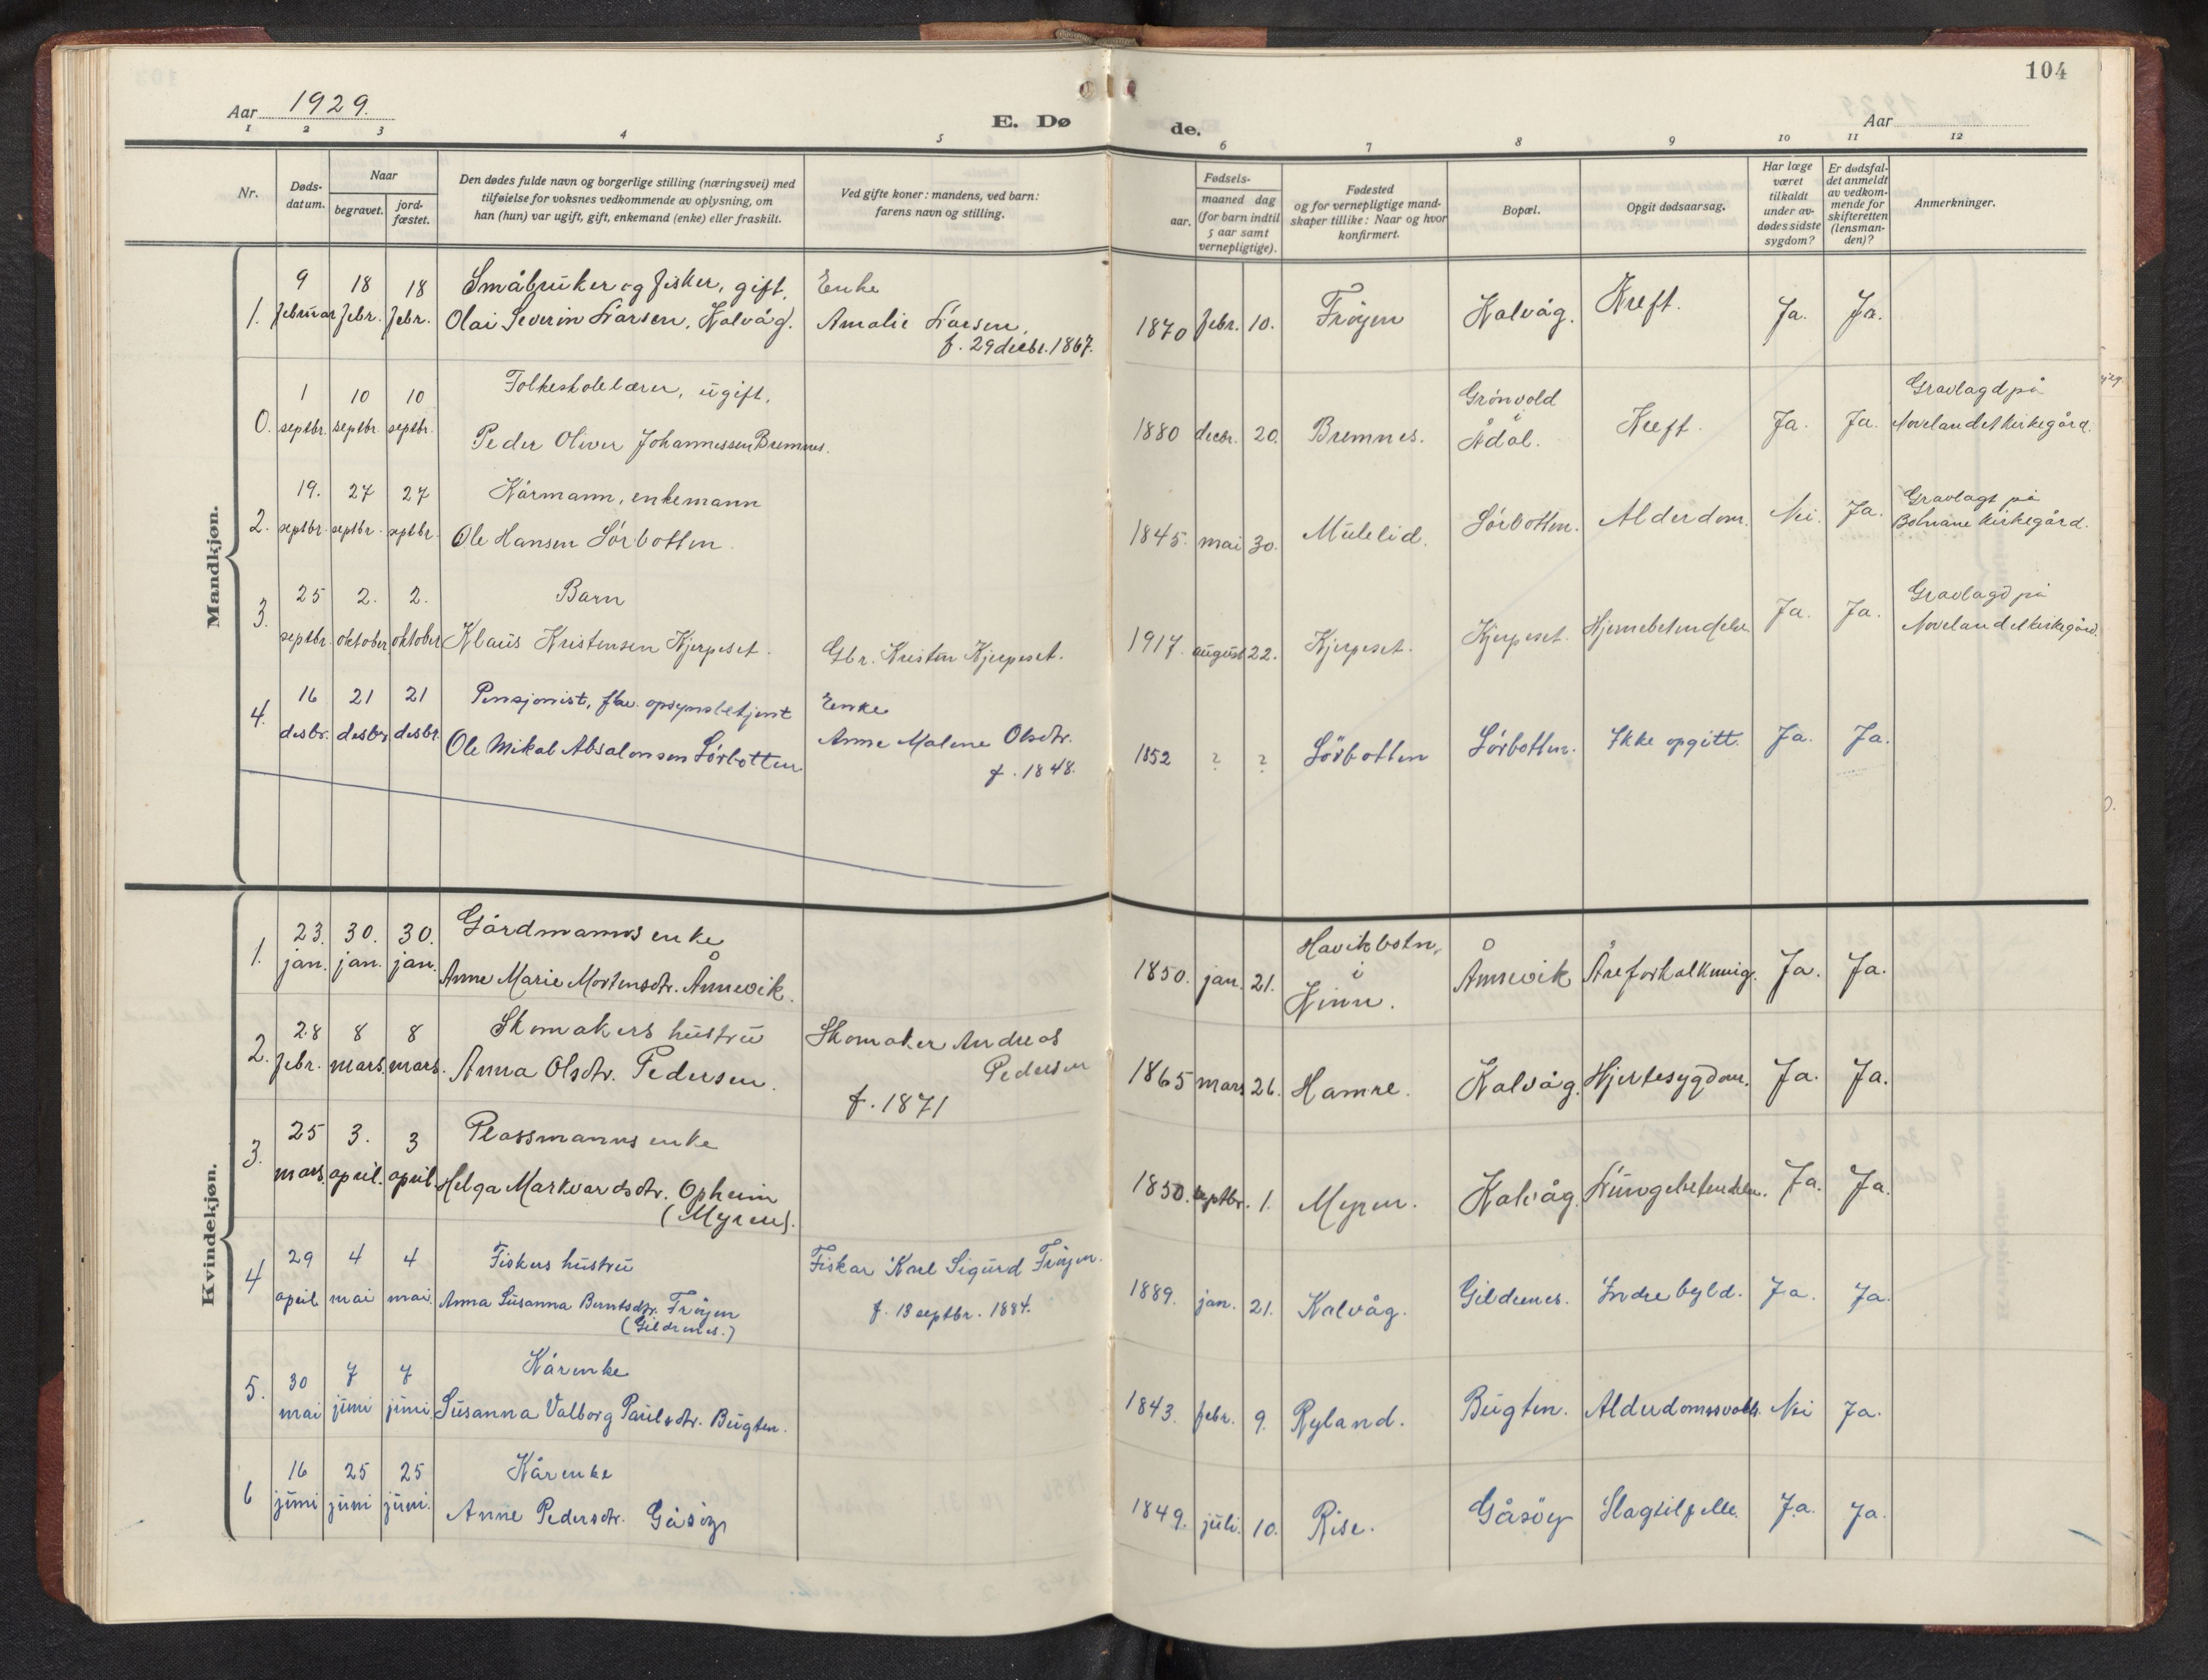 104
Aar 1929.
E. Dø
de.
Aar
1 2 3 4 5 6 7 8 9 10 11 12
Nr.
Døds-
datum.
Naar
begravet.
jord-
fæstet.
Den dødes fulde navn og borgerlige stilling (næringsvei) med
tilføielse for voksnes vedkommende av oplysning, om
han (hun) var ugift, gift, enkemand (enke) eller fraskilt.
Ved gifte koner: mandens, ved barn:
farens navn og stilling.
Fødsels-
aar.
maaned dag
(for barn indtil
5 aar samt
vernepligtige).
Fødested
og for vernepligtige mand-
skaper tillike: Naar og hvor
konfirmert.
Bopæl.
Opgit dødsaarsag.
Har læge
været
tilkaldt
under av-
dødes sidste
sygdom?
Er dødsfal-
det anmeldt
av vedkom-
mende for
skifteretten
(lensman-
den)?
Anmerkninger.
Mandkjøn.
9 18 18 Småbruker og fisker, gift, Enke
1. februar febr. febr. Olai Severin Larsen, Kalvåg. Amalie Larsen, 1870 febr. 10. Frøyen Kalvåg. Kreft. Ja. Ja.
f. 29 decbr. 1867.
1 10 10 Folkeskolelærer, ugift, Grönvold Gravlagd på
0. septbr. septbr. septbr. Peder Oliver Johannessen Bremnes. 1880 decbr. 20. Bremnes. i Ådal. Kreft. Ja. Ja. Novelandet kirkegård.
19. 27 27 Kårmann, enkemann Gravlagt på
2. septbr. septbr. septbr. Ole Hansen Sørbotten. 1845. mai 30. Mulelid. Sørbotten. Alderdom. Nei. Ja. kirkegård.
25 2. 2. Barn Gravlagd på
3. septbr. oktober oktober Klaus Kristensen Kjerpeset. Gbr. Kristen Kjerpeset. 1917. august 22. Kjerpeset. Kjerpeset. Hjernebetendelse Ja. Ja. Novelandet kirkegård.
16 21 21 Pensjonist, fhv. opsynsbetjent Enke
4. desbr. desbr. desbr. Ole Mikal Absalonsen Sørbotten Anne Malene Olsdtr. 1852 ? ? Sørbotten Sørbotten. Ikke opgitt. Ja. Ja.
f. 1848.
Kvindekjøn.
23. 30. 30. Gårdmanns enke Havikbotn,
1. jan. jan. jan. Anne Marie Mortensdtr. Ånnevik. 1850. jan. 21. i Kinn. Ånnevik Åreforkalkning. Ja. Ja.
28 8 8 Skomakers hustru Skomaker Andreas
2. febr. mars. mars. Anna Olsdtr. Pedersen. Pedersen 1865 mars 26. Hamre. Kalvåg. Hjertesygdom. Ja. Ja.
f. 1871
25 3. 3 Plassmanns enke
3. mars. april. april. Helga Markvardsdtr. Opheim 1850. septbr. 1. Myren. Kalvåg. Lungebetendelse. Ja. Ja.
(Myren).
29 4 4 Fiskers hustru Fiskar Karl Sigurd Frøyen.
4 april mai mai. Anna Susanna Berntsdtr. Frøyen f. 13 septbr. 1884. 1889. jan. 21. Kalvåg. Gildrenes. Indre byld. Ja. Ja.
(Gildrenes.)
30 7 7 Kårenke
5. mai juni juni. Susanna Valborg Paulsdtr. Bugten. 1843. febr. 9. Ryland. Bugten. Alderdomssvakh. Nei Ja.
16 25 25 Kårenke
6 juni juni juni. Anne Pedersdtr. Gåsøy 1849. juli. 10. Rise. Gåsøy Slagtilfelle. Ja. Ja.